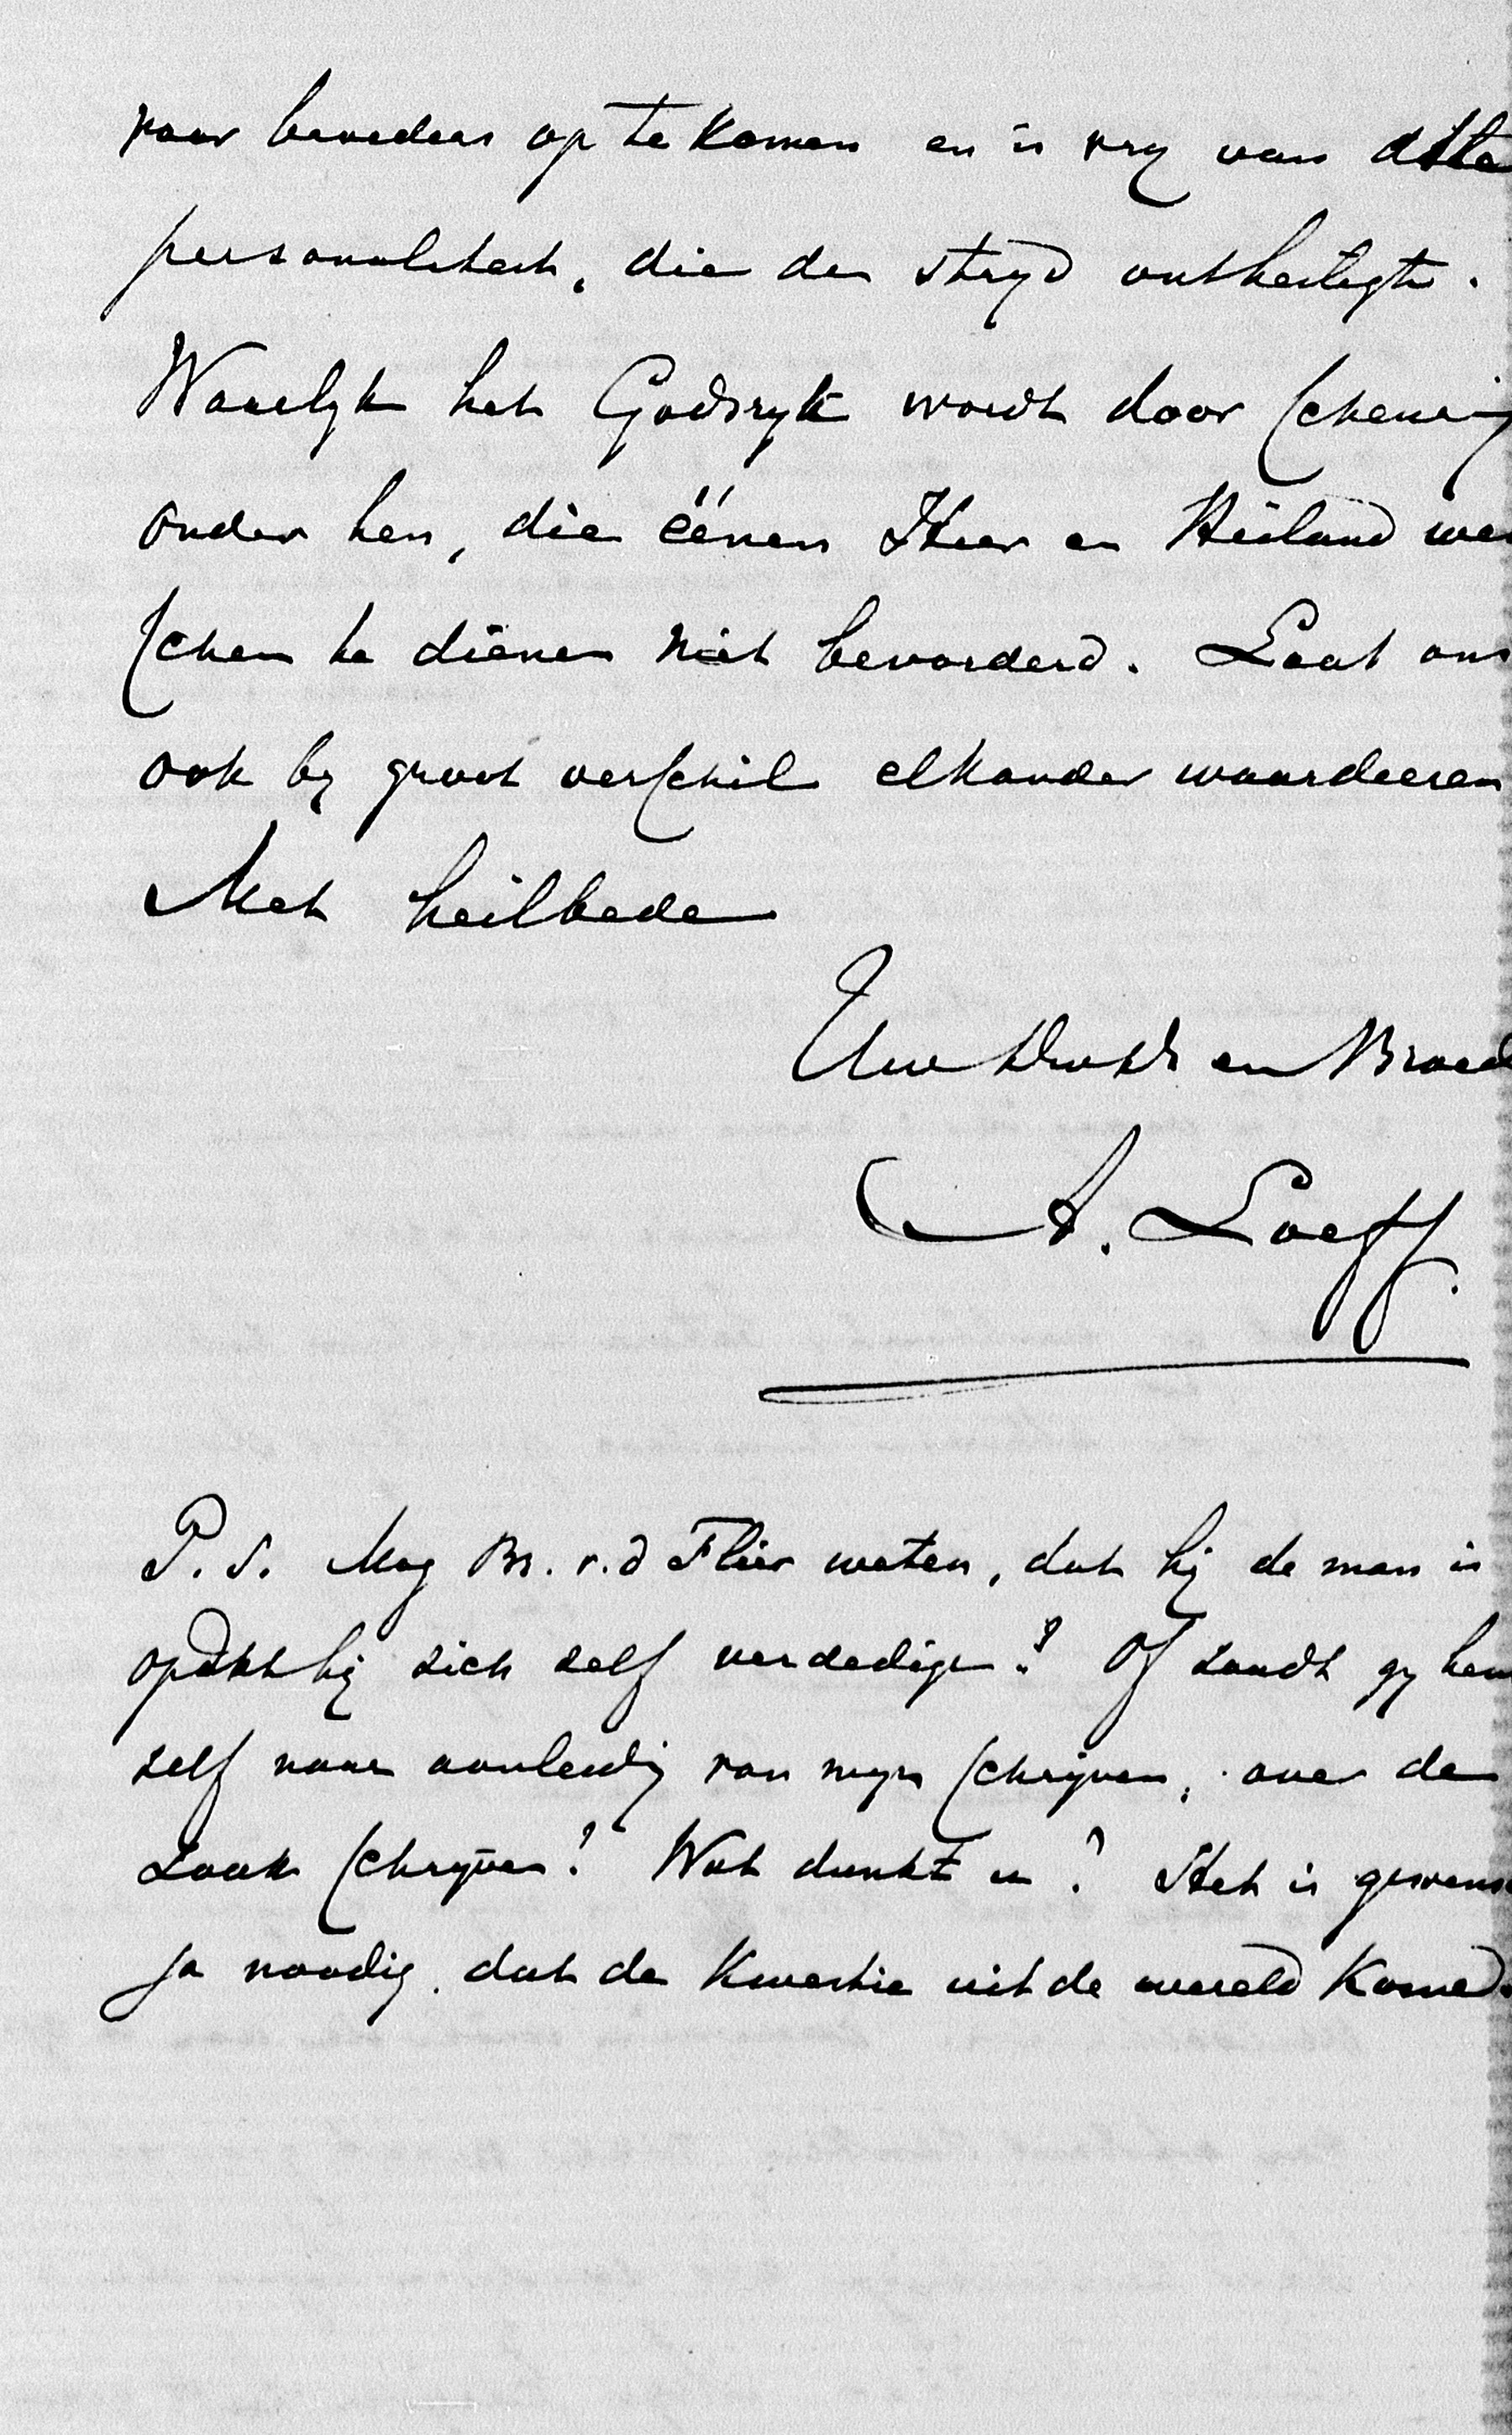 voor broeders op te komen en is vry van alle
personaliteit, die den stryd ontheiligt.
Waarlyk het Godsryk wordt door scheuring
onder hen, die éénen Heer en Heiland wen
schen te dienen niet bevorderd. Laat ons
ook by groot verschil elkander waardeeren
Met heilbede
Uw en Broed
A. Loeff.
P.S. Mag Br. v.d Flier weten, dat hij de man is
opdat hij zich zelf verdedige? Of zoudt gy hem
zelf naar aanleidig van myn schryven, over de
zaak schryven? Wat dunkt u? Het is gewens
ja noodig dat de kwestie uit de wereld kome.